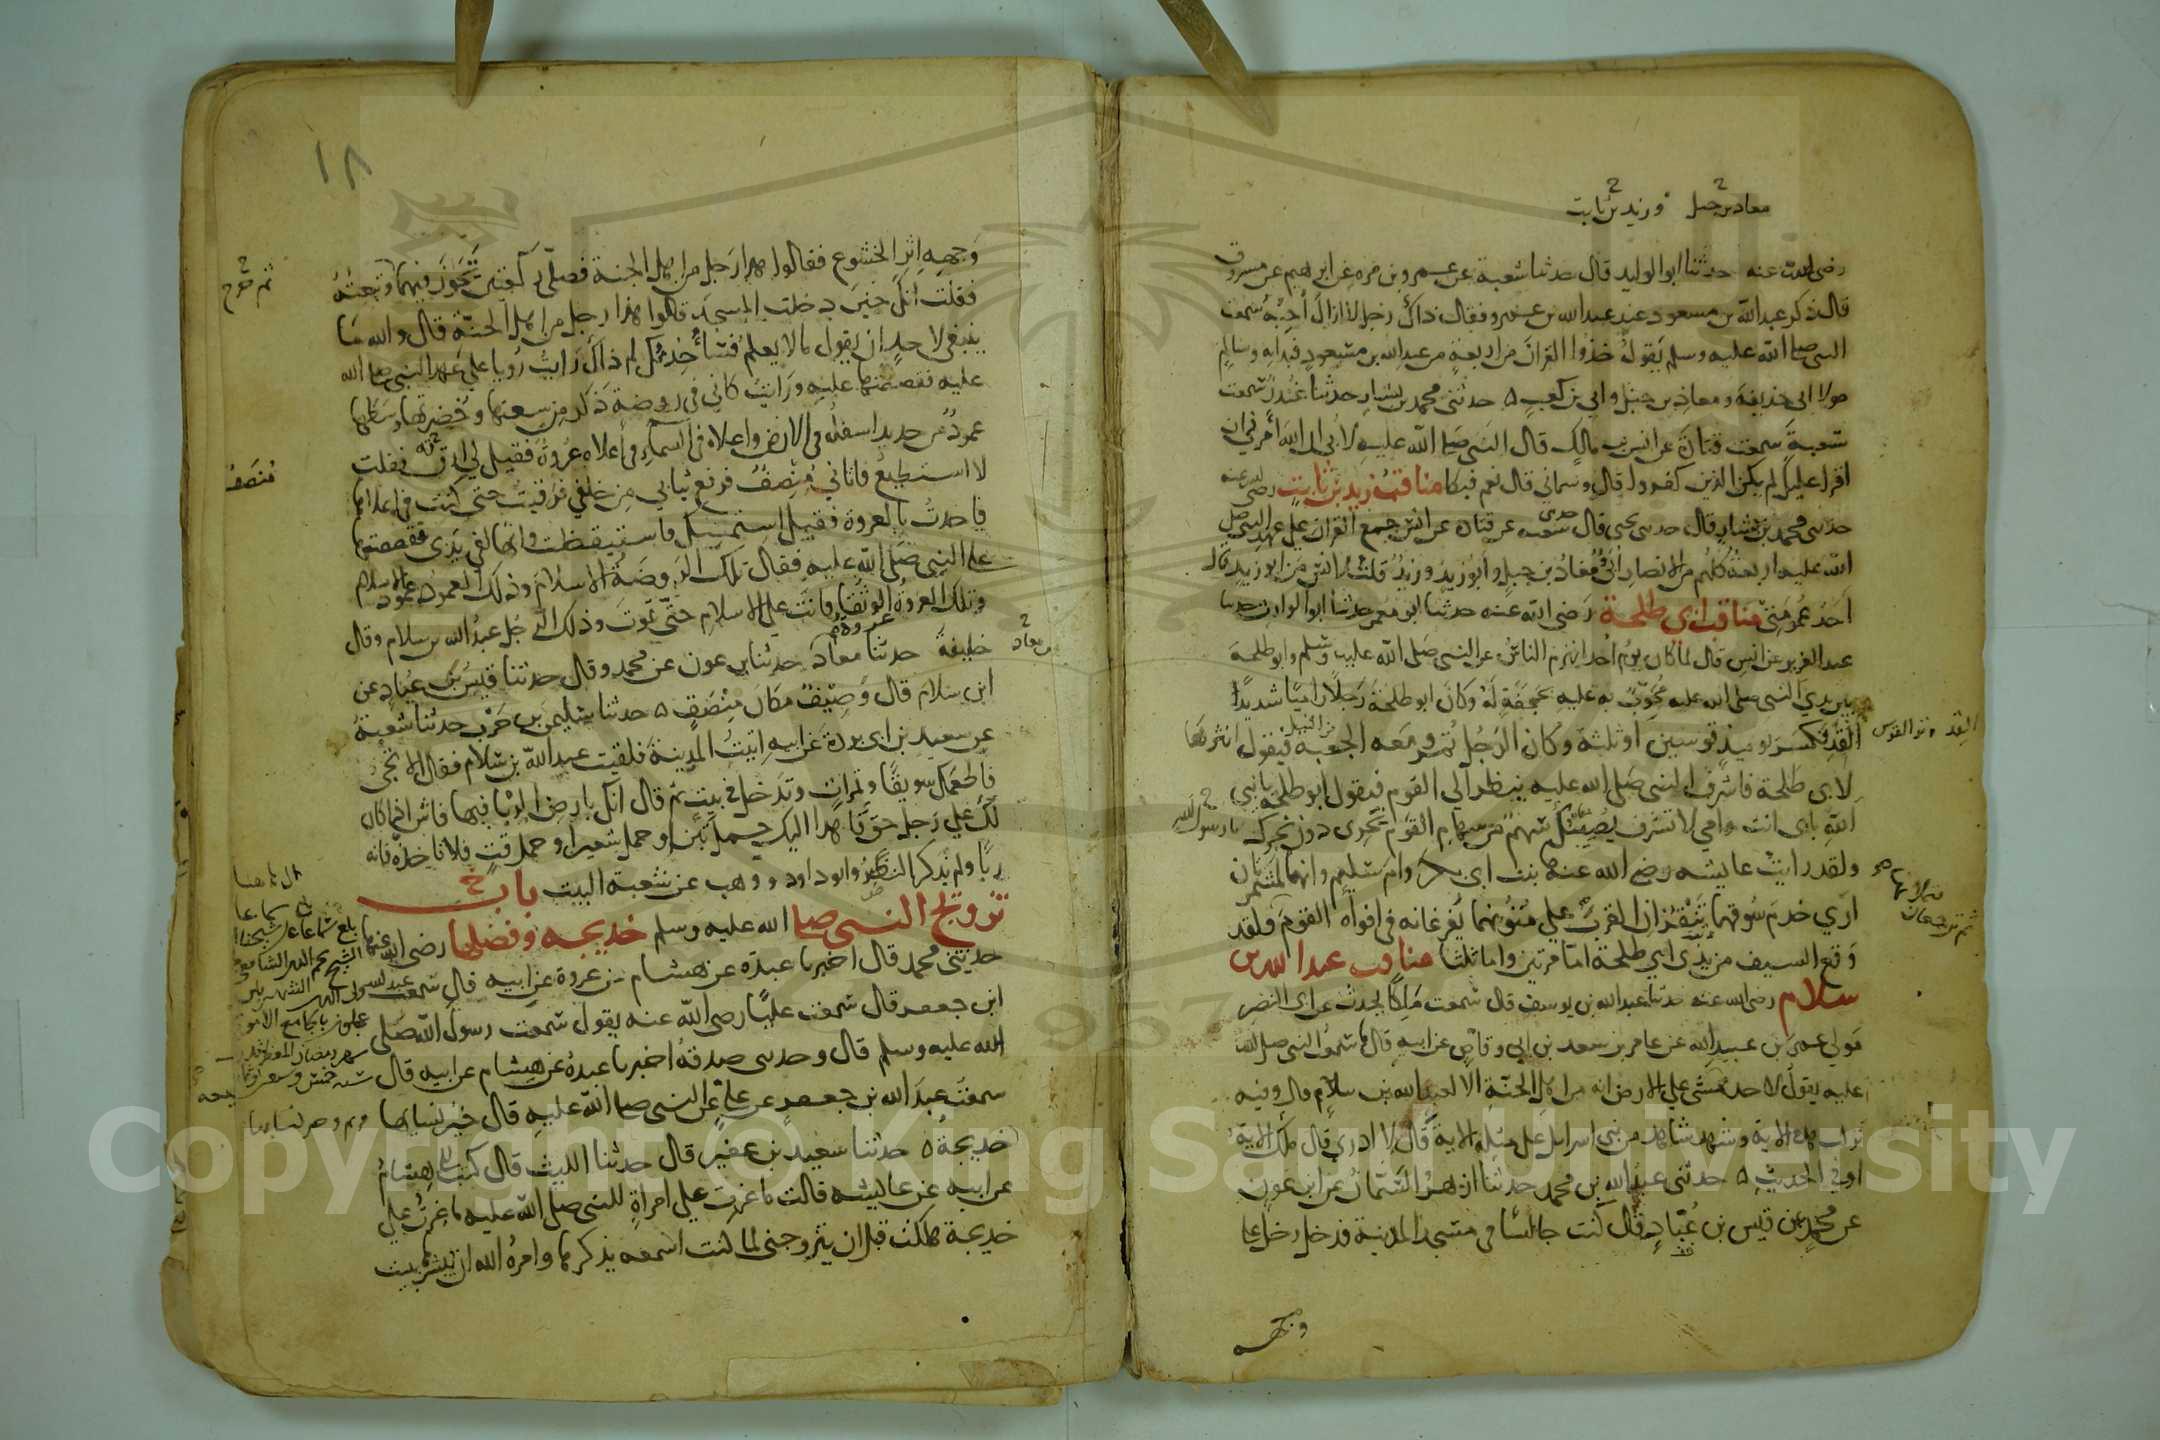 معاذ بن جبل وزيد بن ثابت
رضي الله عنه حدثنا ابو الوليد قال حدثنا شعبة عن عمرو بن مره عن ابرهيم عن مسروق
قال ذكر عبد الله بن مسعود عند عبد الله بن عمرو فقال ذاك رجل لا ازال أحبه سمعت
النبي صلى الله عليه وسلم يقول خذوا القران من اربعة من عبد الله بن مسعود فبدا به وسالم
مولا ابي حذيفة ومعاذ بن جبل وابي بن كعب ه حدثني محمد بن بشار حدثنا غندر سمعت
شعبة سمعت قتادة عن انس بن مالك قال النبي صلى الله عليه لابي ان الله أمرني ان
اقرا عليك لم يكن الذين كفروا قال وسماني قال نعم فبكا مناقب زيد بن ثابت رضي الله عنه
حدثني محمد بن بشار قال حدثنا يحيى قال حدثنا شعبه عن قتادة عن انس جمع القران على عهد النبي صلى
الله عليه اربعة كلهم من الانصار ابي ومعاذ بن جبل وابو زيد وزيد قلت لانس من ابو زيد قال
احد عمومتي مناقب ابي طلحة رضي الله عنه حدثنا ابو معمر حدثنا ابو الوارث حدثنا
عبد العزيز عن انس قال لما كان يوم احد انهزم الناس عن النبي صلى الله عليه وسلم وابو طلحة
بين يدي النبي صلى الله عليه مجوب به عليه بحجفة له وكان ابو طلحة رجلا راميا شديدا
القد تكسر يوميذ قوسين او ثلثة وكان الرجل يمر ومعه الجعبة من النبل فيقول انثرها
القد وتر القوس
لابي طلحة فاشرف النبي صلى الله عليه ينظر الى القوم فيقول ابو طلحة يا نبي
يا رسول الله
الله بابي انت وامي لا تشرف يصيبك سهم من سهام القوم نحري دون نحرك
ولقد رايت عايشه رضي الله عنها بنت ابي بكر وام سليم وانهما لمشمرتان
ارى خدم سوقهما تنقزان القرب على متونهما يفرغانه في افواه القوم ولقد
وقع السيف من يدي ابي طلحة اما مرتين واما ثلثا مناقب عبد الله بن
سلام رضي الله عنه حدثنا عبد الله بن يوسف قال سمعت مالكا يحدث عن ابي النضر
مولى عمر بن عبيد الله عن عامر بن سعد بن ابي وقاص عن ابيه قال ما سمعت النبي صلى الله
عليه يقول لاحد يمشي على الارض انه من اهل الجنة الا لعبد الله بن سلام قال وفيه
نزلت هذه الاية وشهد شاهد من بني اسرايل على مثله الاية قال لا ادري قال ملك الاية
او في الحديث ه حدثني عبد الله بن محمد حدثنا ازهر السمان عن ابن عون
عن محمد عن قيس بن عباد قال كنت جالسا في مسجد المدينة فدخل رجل على
وجهه
١٨
وجهه اثر الخشوع فقالوا هذا رجل من اهل الجنة فصلى ركعتين تجوز فيهما وتبعته
ثم خرج
فقلت انك حين دخلت المسجد قالوا هذا رجل من اهل الجنة قال والله ما
ينبغي لاحد ان يقول ما لا يعلم فسأحدثك لم ذاك رايت رويا على عهد النبي صلى الله
عليه فقصصتها عليه ورايت كاني في روضة ذكر من سعتها وخضرتها وسطها
عمود من حديد اسفله في الارض واعلاه في السماء في أعلاه عروة فقيل لي ارقه فقلت
لا استطيع فاتاني منصف فرفع ثيابي من خلفي فرقيت حتى كنت في اعلاها
منصف
فاخذت بالعروة فقيل استمسك فاستيقظت وانها لفي يدي فقصصتها
على النبي صلى الله عليه فقال تلك الروضة الاسلام وذلك العمود عمود الاسلام
وتلك العروة الوثقى فانت على الاسلام حتى تموت وذلك الرجل عبد الله بن سلام وقال
خليفة حدثنا معاذ حدثنا بن عون عن محمد وقال حدثنا قيس بن عباد عن
ابن سلام قال وصيف مكان منصف ه حدثنا سليمن بن حرب حدثنا شعبة
عن سعيد بن ابي بردة عن ابيه اتيت المدينة فلقيت عبد الله بن سلام فقال الا تجئ
فاطعمك سويقا وتمرا وتدخل في بيت ثم قال انك بارض الربا فيها فاش اذا كان
لك على رجل حق فاهدا اليك حمل تبن او حمل شعير او حمل قت فلا تاخذه فانه
ربا ولم يذكر النضر وابو داود ووهب عن شعبة البيت باب
تزويج النبي صلى الله عليه وسلم خديجه وفضلها رضي الله عنها
حدثني محمد قال اخبرنا عبدة عن هشام بن عروة عن ابيه قال سمعت عبد الله
ابن جعفر قال سمعت عليا رضي الله عنه يقول سمعت رسول الله صلى
الله عليه وسلم قال وحدثني صدقة اخبرنا عبدة عن هشام عن ابيه قال
سمعت عبد الله بن جعفر عن علي عن النبي صلى الله عليه قال خير نسايها مريم وخير نسايها
خديجة ه حدثنا سعيد بن عفير قال حدثنا الليث قال كتب الي هشام
عن ابيه عن عايشه قالت ما غرت على امراة للنبي صلى الله عليه ما غرت على
خديجة هلكت قبل ان يتزوجني لما كنت اسمعه يذكرها وامره الله ان يبشرها ببيت
Copyright © King Saud University
1957